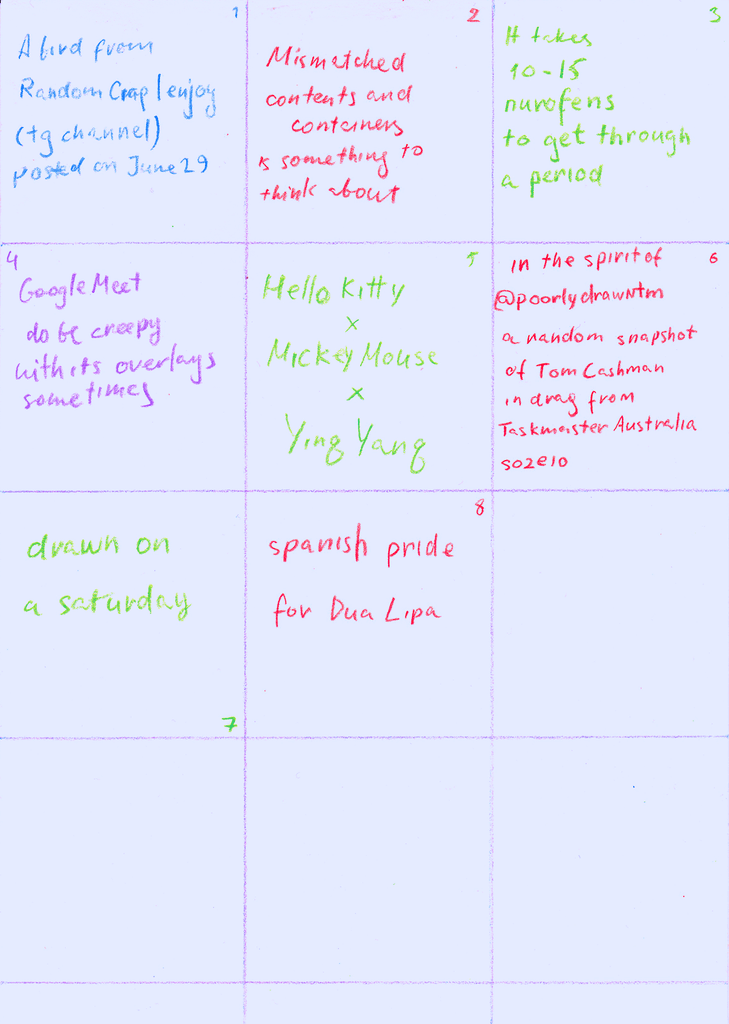 1
A bird from
Random Crap I enjoy
(tg channel)
posted on June 29
2
Mismatched
contents and
containers
is something to
think about
3
It takes
10-15
nurofens
to get through
a period
4
Google Meet
do be creepy
with its overlays
sometimes
5
Hello Kitty
x
Mickey Mouse
x
Ying Yang
6
in the spirit of
@poorlydrawntm
a random snapshot
of Tom Cashman
in drag from
Taskmaster Australia
s02e10
drawn on
a saturday
7
8
spanish pride
for Dua Lipa